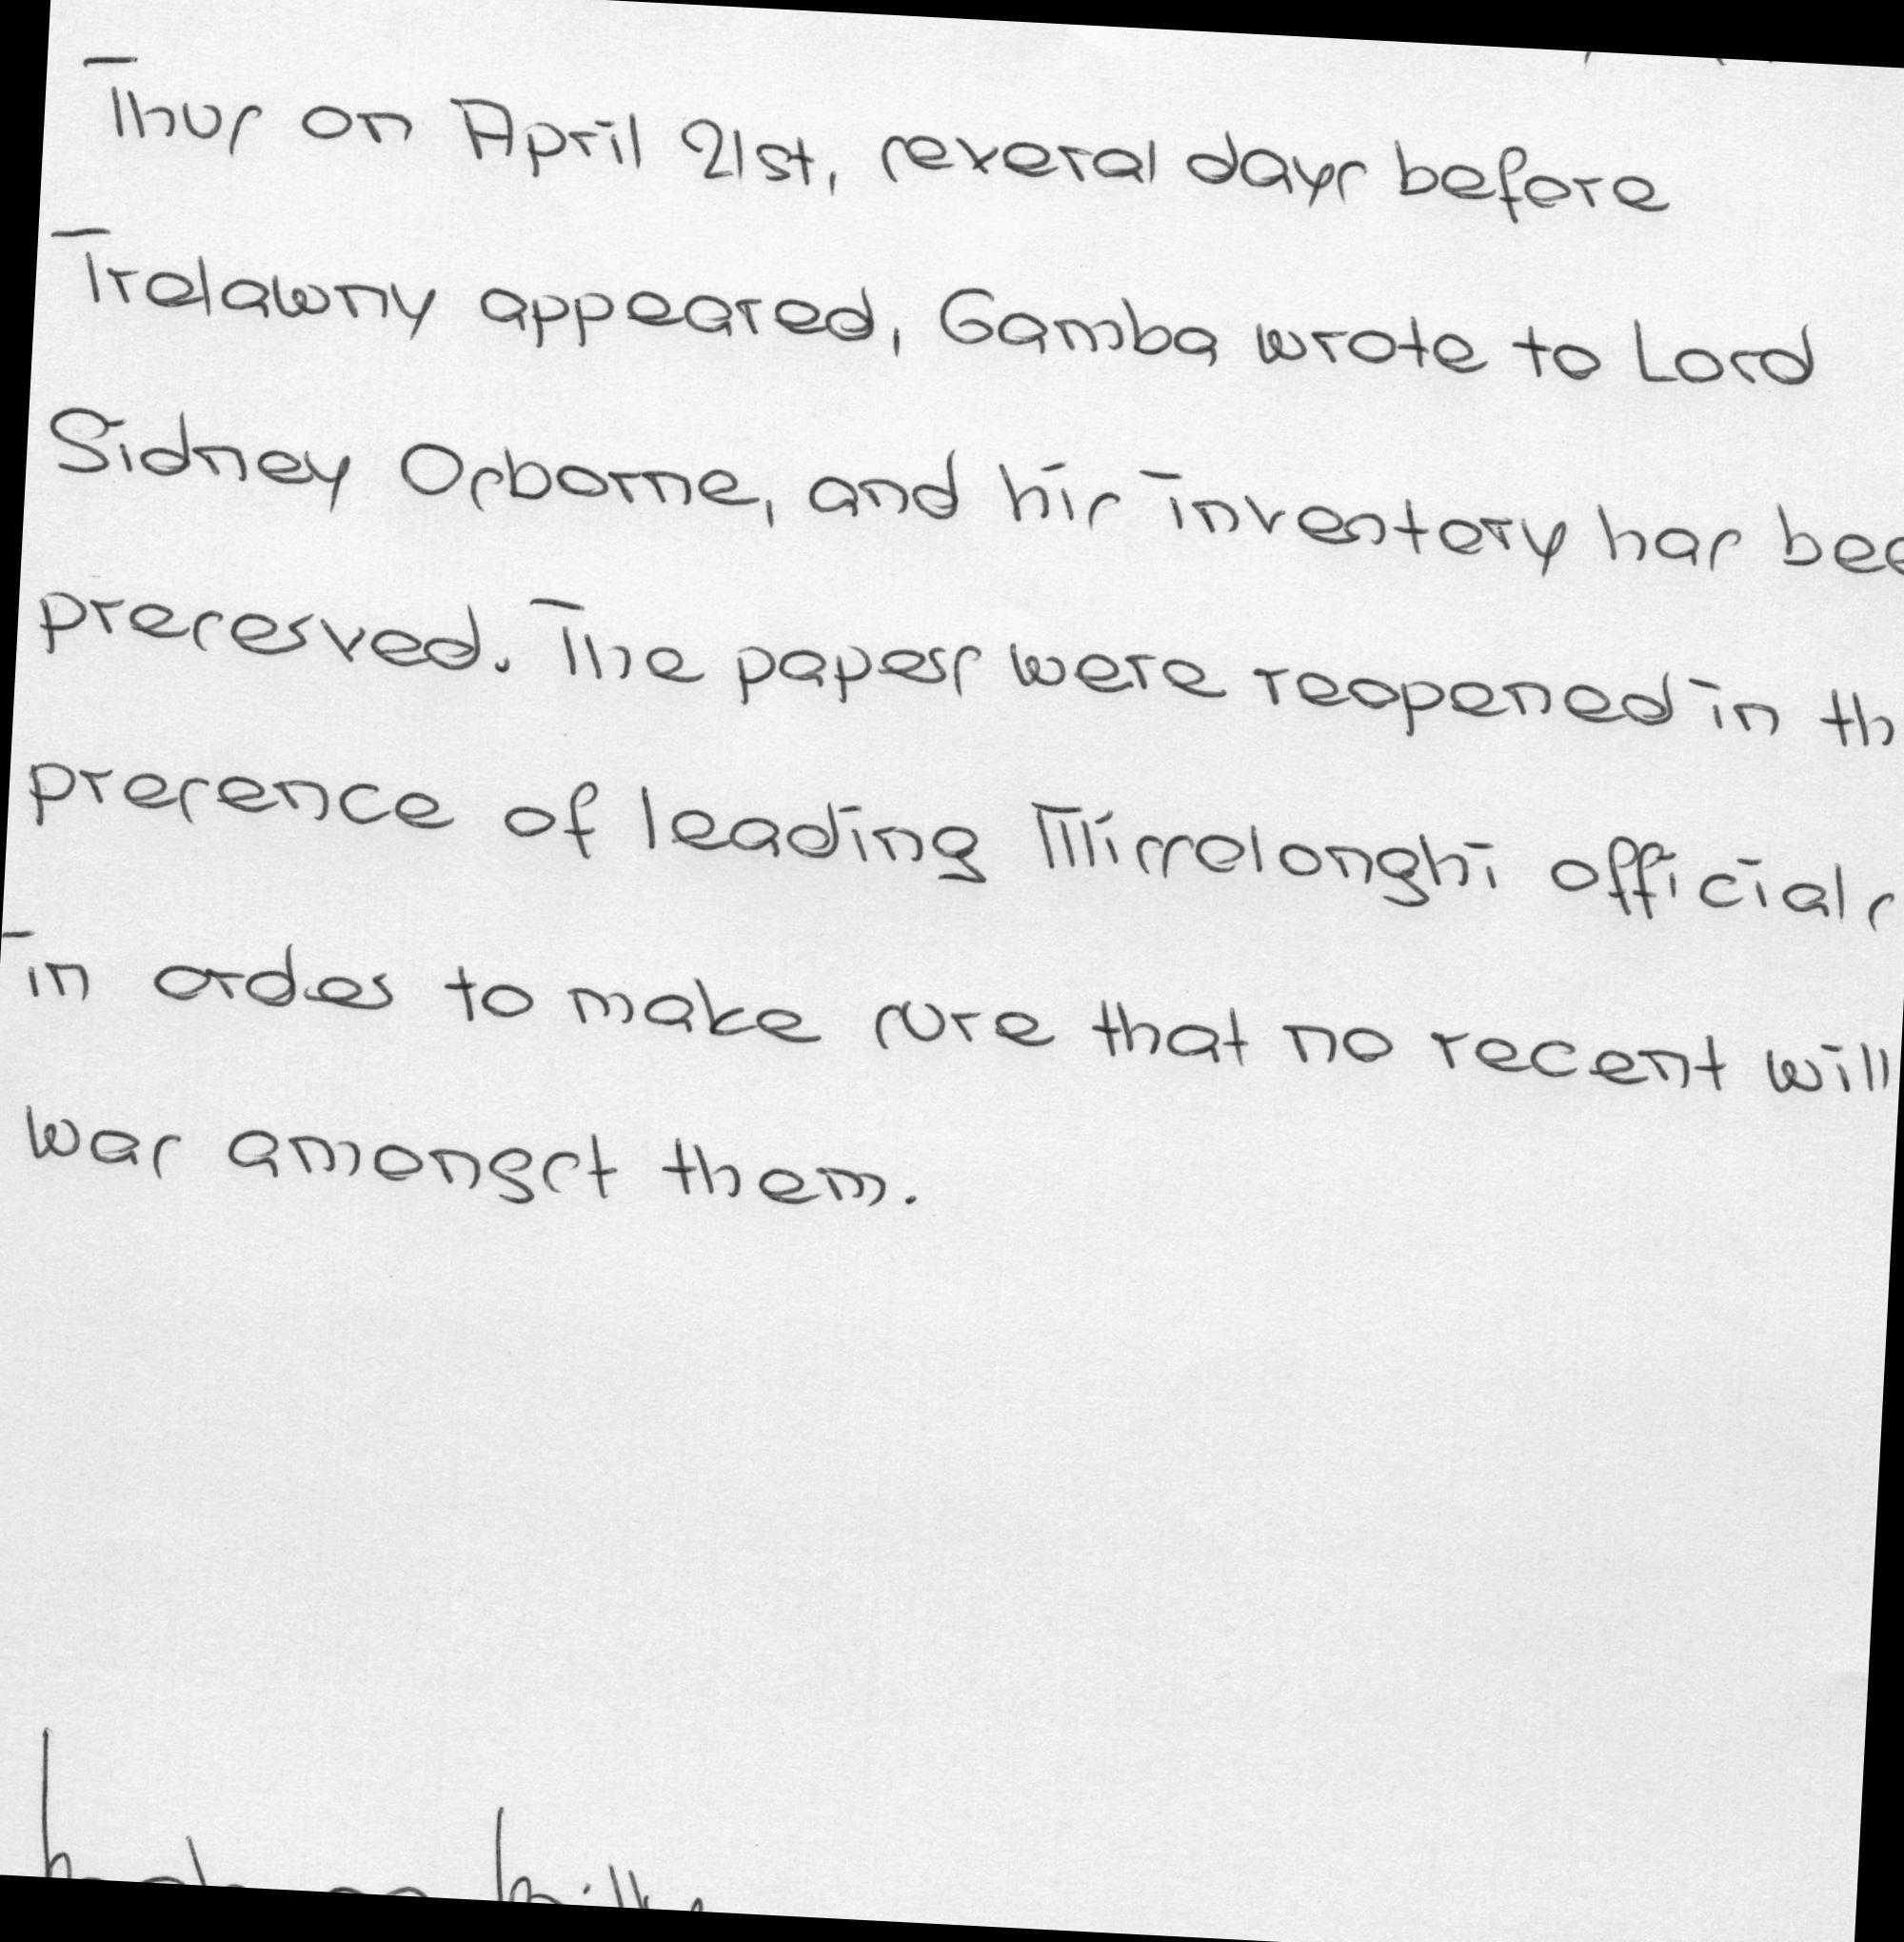 Thus on April 21st, several days before
Trelawny appeared, Gamba wrote to Lord
Sidney Osborne, and his inventory has bee
preserved. The papers were reopened in th
presence of leading Missolonghi officials
in order to make sure that no recent will
was amongst them.